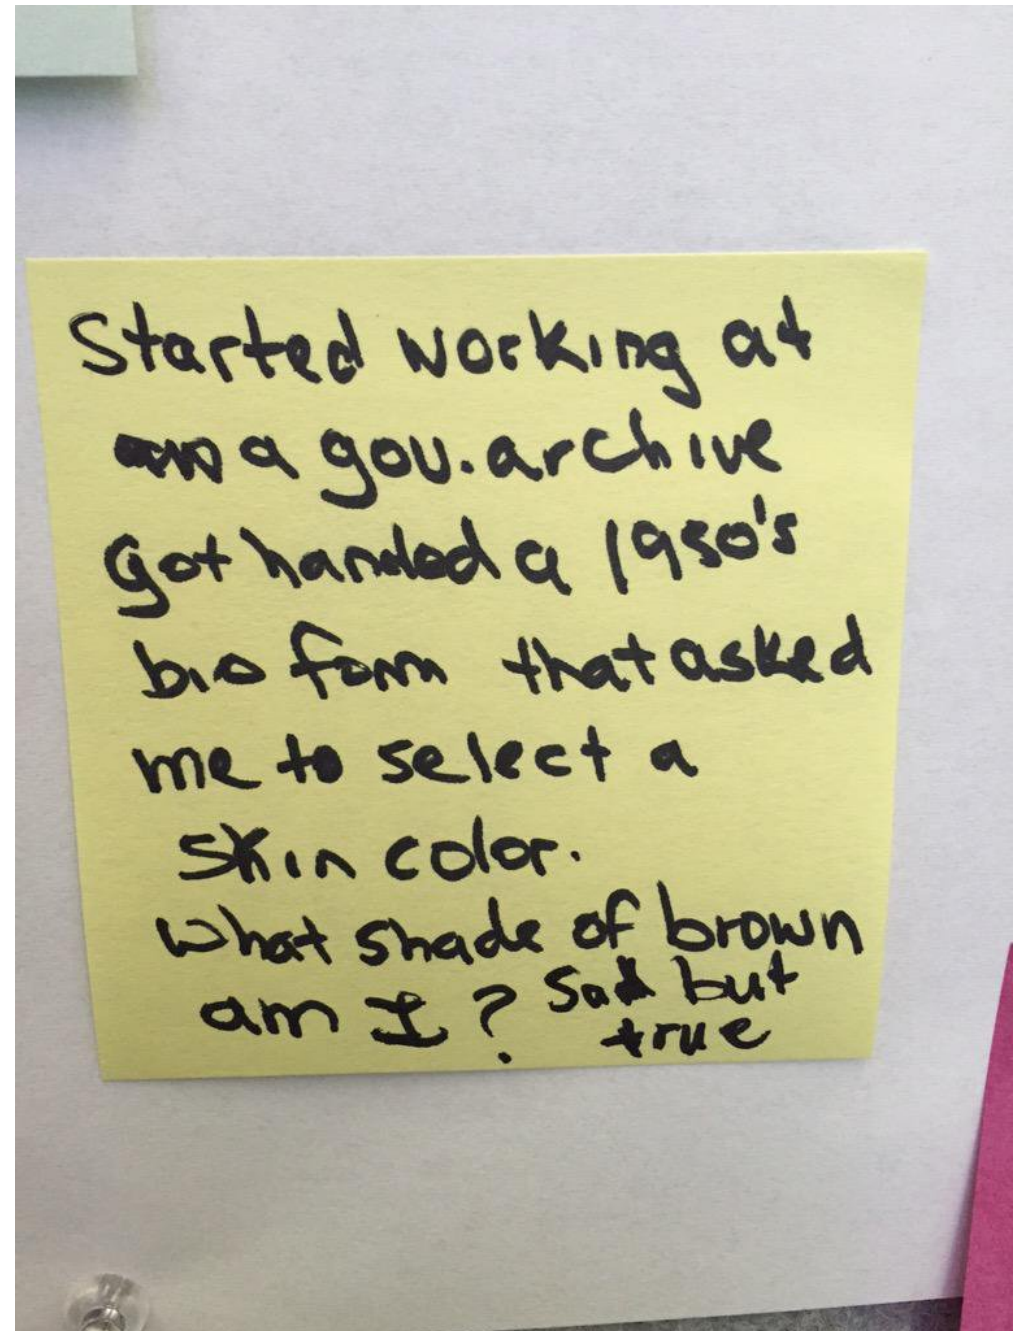 Started working at
a gov. archive
Got handed a 1950's
bio form that asked
me to select a
skin color.
What shade of brown
am I? Sad but
true